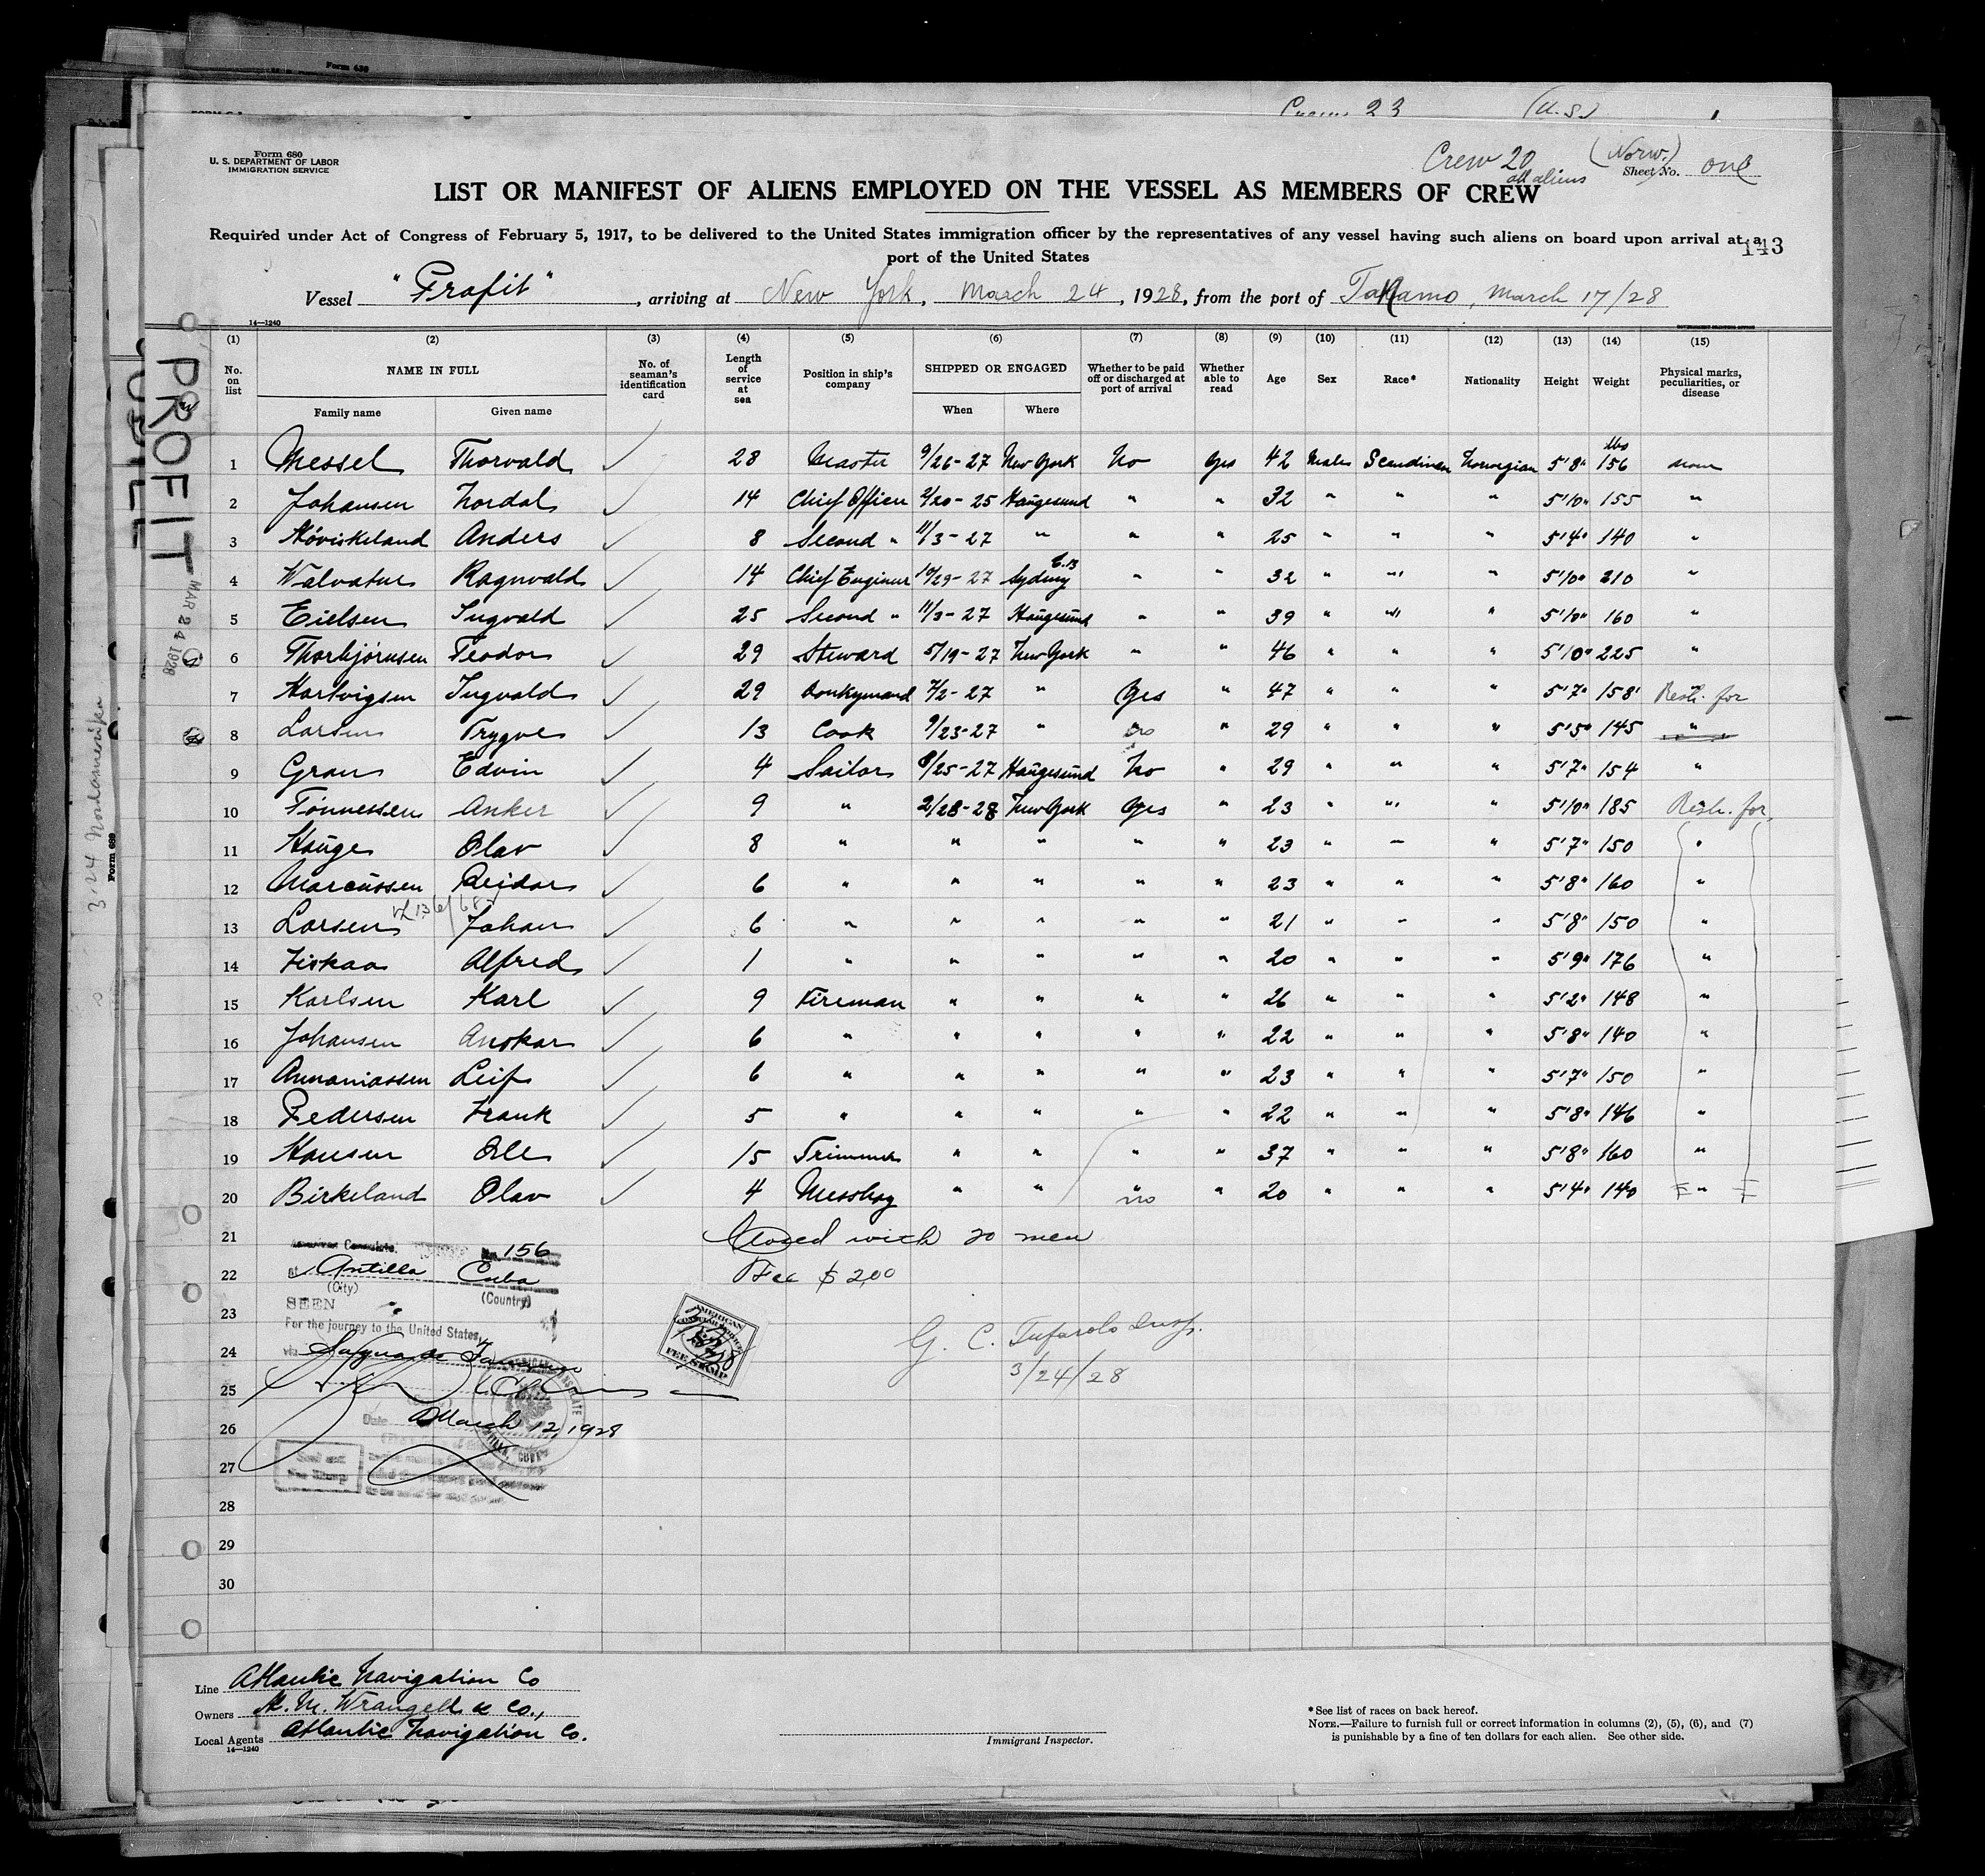 Form 630
Crew 23 (U.S.)
Form 680
U. S. DEPARTMENT OF LABOR
IMMIGRATION SERVICE
Crew 20 (Norw.)
all aliens
Sheet No. one
LIST OR MANIFEST OF ALIENS EMPLOYED ON THE VESSEL AS MEMBERS OF CREW
Required under Act of Congress of February 5, 1917, to be delivered to the United States immigration officer by the representatives of any vessel having such aliens on board upon arrival at a
port of the United States
143
Vessel "Profit", arriving at New York, March 24, 1928, from the port of Tanamo, March 17/28
14—1240
(1) (2) (3) (4) (5) (6) (7) (8) (9) (10) (11) (12) (13) (14) (15)
No. on list NAME IN FULL No. of seaman's identification card Length of service at sea Position in ship's company SHIPPED OR ENGAGED Whether to be paid off or discharged at port of arrival Whether able to read Age Sex Race* Nationality Height Weight Physical marks, peculiarities, or disease
Family name Given name When Where
1 Messel Thorvald 28 Master 9/26-27 New York No Yes 42 Males Scandinav Norwegian 5'8" lbs 156 none
2 Johansen Nordal 14 Chief Officer 2/20-25 Haugesund " " 32 " " " 5'10" 155 "
3 Hóviskeland Anders 8 Second " 11/3-27 " " " 25 " " " 5'4" 140 "
4 Valvatne Ragnvald 14 Chief Engineer 10/29-27 Sydney C.B " " 32 " " " 5'10" 210 "
5 Eielsen Ingvald 25 Second " 11/3-27 Haugesund " " 39 " " " 5'10" 160 "
6 Thorbjórnsen Teodor 29 Steward 5/19-27 New York " " 46 " " " 5'10" 225 "
7 Hartvigsen Ingvald 29 Donkymand 7/2-27 " Yes " 47 " " " 5'7" 158 Resh. for
8 Larsen Trygve 13 Cook 9/23-27 " no " 29 " " " 5'5" 145 "
9 Grau Edvin 4 Sailor 8/25-27 Haugesund No " 29 " " " 5'7" 154 "
10 Tónnessen Anker 9 " 2/28-28 New York Yes " 23 " " " 5'10" 185 Resh. for
11 Hauge Olav 8 " " " " " 23 " " " 5'7" 150 "
12 Marcussen Reidar 6 " " " " " 23 " " " 5'8" 160 "
13 Larsen Johan 6 " " " " " 21 " " " 5'8" 150 "
14 Fiskaa Alfred 1 " " " " " 20 " " " 5'9" 176 "
15 Karlsen Karl 9 Fireman " " " " 26 " " " 5'2" 148 "
16 Johansen Anskar 6 " " " " " 22 " " " 5'8" 140 "
17 Annaniassen Leif 6 " " " " " 23 " " " 5'7" 150 "
18 Pedersen Frank 5 " " " " " 22 " " " 5'8" 146 "
19 Hansen Ole 15 Trimmer " " " " 37 " " " 5'8" 160 "
20 Birkeland Olav 4 Messboy " " " no " 20 " " " 5'4" 140 "
21 Closed with 20 men
American Consulate. No. 156
22 Fee $ 2,00
at Antilla Cuba
(City) (Country)
SEEN
23
For the journey to the United States,
24
via Sagua de Tanamo
G. C. Tufarolo Insp.
3/24/28
AMERICAN CONSULAR SERVICE
FEE STAMP
25
26
Date March 12, 1928
AMERICAN CONSULATE
ANTILLA, CUBA
Seal and
Fee Stamp
27
28
29
30
Line Atlantic Navigation Co
Owners H. M. Wrangell & Co.,
Local Agents Atlantic Navigation Co.
14—1240
Immigrant Inspector.
*See list of races on back hereof.
NOTE.—Failure to furnish full or correct information in columns (2), (5), (6), and (7)
is punishable by a fine of ten dollars for each alien. See other side.
PROFIT
MAR 24 1928
3·24 Nordamerika
Form 689